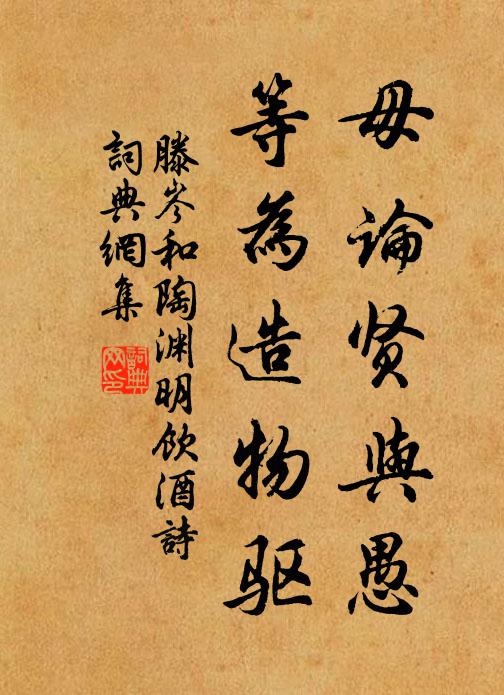 毋论贤與愚
等為造物驱
滕岑和陶渊明饮酒詩
詞典網集
詞典網印